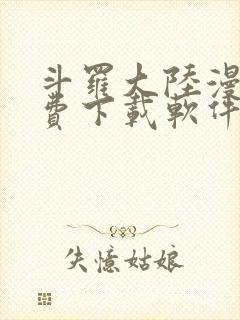 斗羅大陸漫
費下載軟件
失憶姑娘